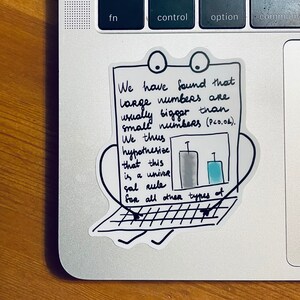 fn
control
option
command
We have found that
large numbers are
usually bigger than
small numbers (P<0,06).
We thus
hypothesize
that this
is a univer
sal rule
for all other types of